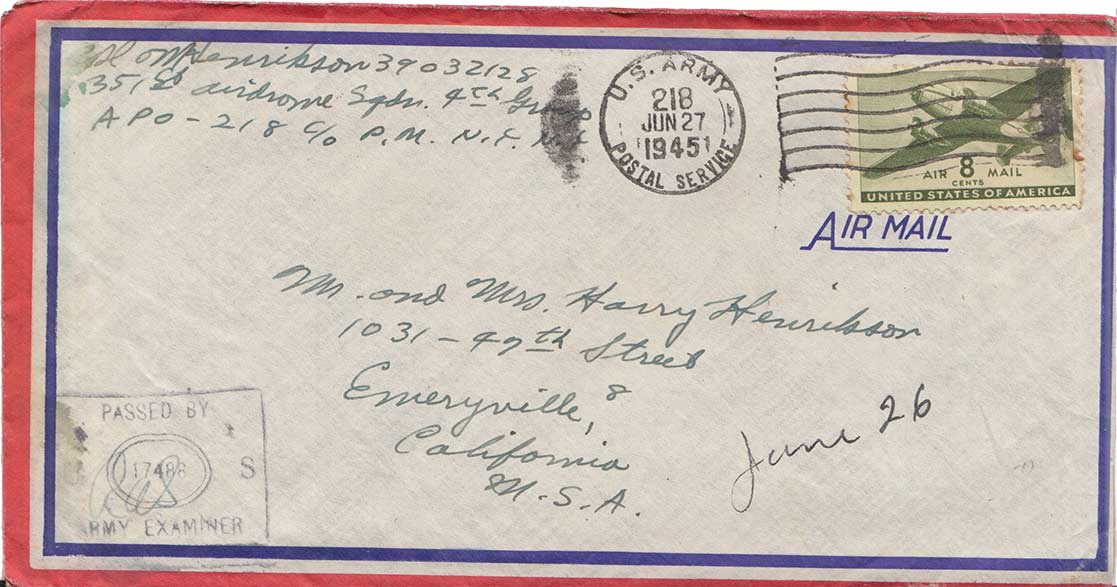 Henrikson 39032128
351st airdrome Sqdn. 4th
APO-218 c/o P.M. N.Y.
U.S. ARMY
218
JUN 27
1945
POSTAL SERVICE
AIR 8 MAIL
CENTS
UNITED STATES OF AMERICA
AIR MAIL
Mr. and Mrs. Harry Henrikson
1031-47th Street
Emeryville, 8
California
U.S.A.
June 26
PASSED BY
17488 S
ARMY EXAMINER